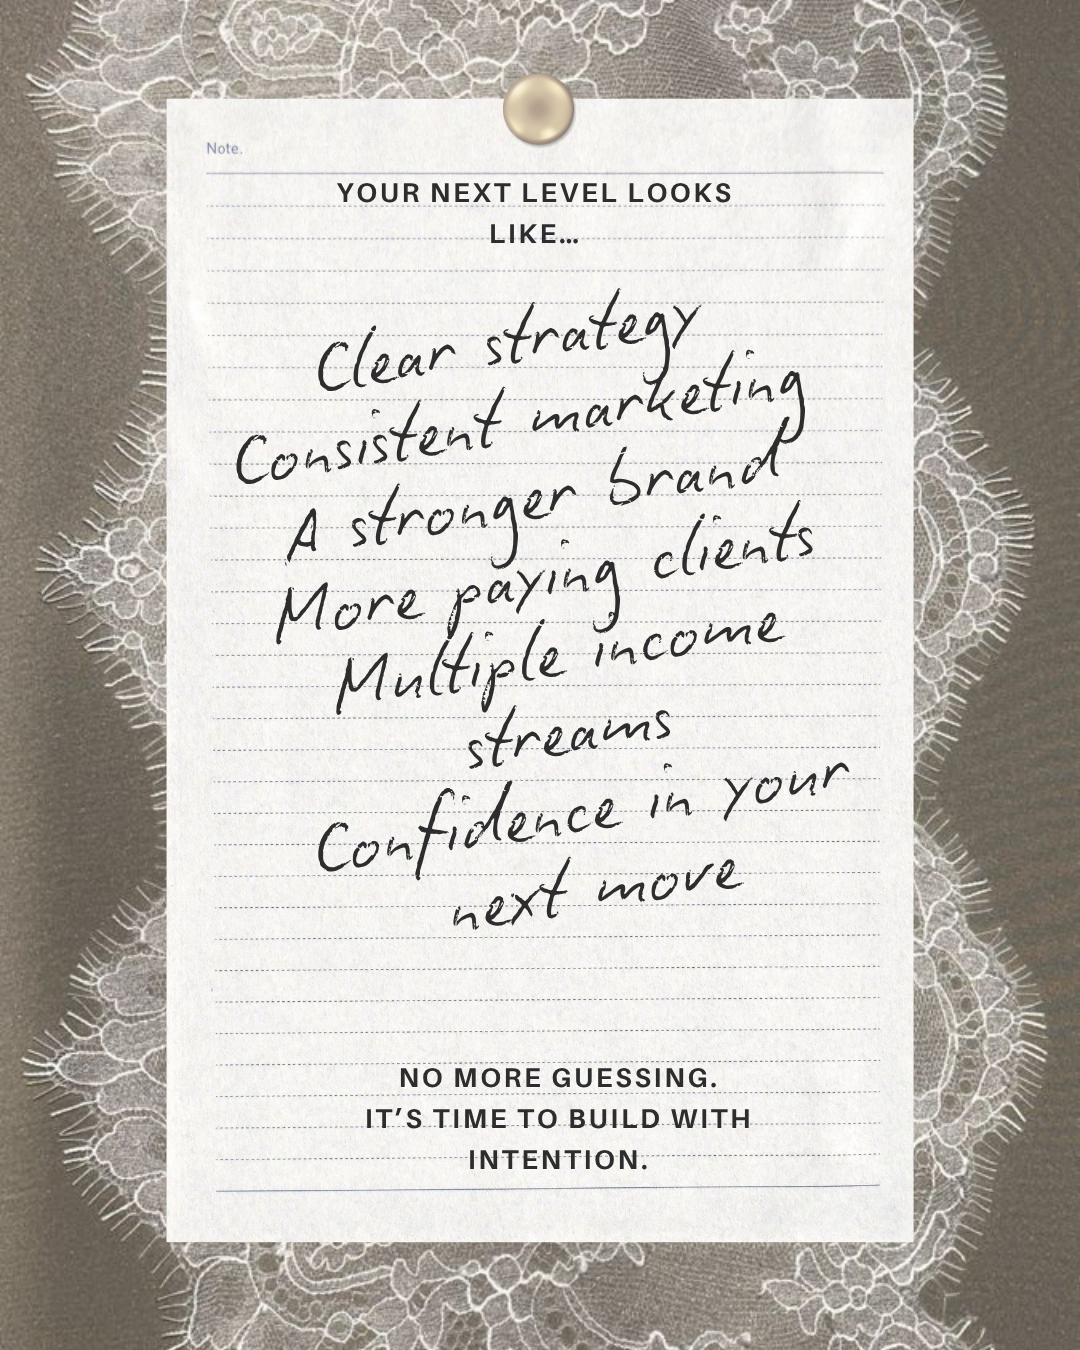 Note.
YOUR NEXT LEVEL LOOKS
LIKE...
Clear strategy
Consistent marketing
A stronger brand
More paying clients
Multiple income
streams
Confidence in your
next move
NO MORE GUESSING.
IT’S TIME TO BUILD WITH
INTENTION.